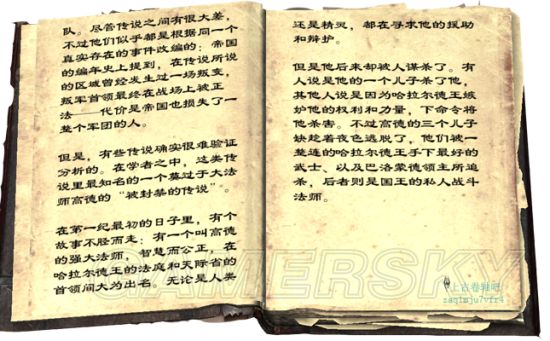 队。尽管传说之间有很大差，
不过他们似乎都是根据同一个
真实存在的事件改编的：帝国
的编年史上提到，在传说所说
的区域曾经发生过一场叛变，
叛军首领最终在战场上被正
法——代价是帝国也损失了一
整个军团的人。
但是，有些传说确实很难验证
分析的。在学者之中，这类传
说里最知名的一个莫过于大法
师高德的“被封禁的传说”。
在第一纪最初的日子里，有个
故事不胫而走：有一个叫高德
的强大法师，智慧而公正，在
哈拉尔德王的法庭和天际省的
首领间大为出名。无论是人类
还是精灵，都在寻求他的援助
和辩护。
但是他后来却被人谋杀了。有
人说是他的一个儿子杀了他，
其他人说是因为哈拉尔德王嫉
妒他的权利和力量，下命令将
他杀害。不过高德的三个儿子
趁着夜色逃脱了，他们被一
整连的哈拉尔德王手下最好的
武士、以及巴洛蒙德领主所追
杀，后者则是国王的私人战斗
法师。
GAMERSKY
上古卷轴吧
zaq1mju7vfr4